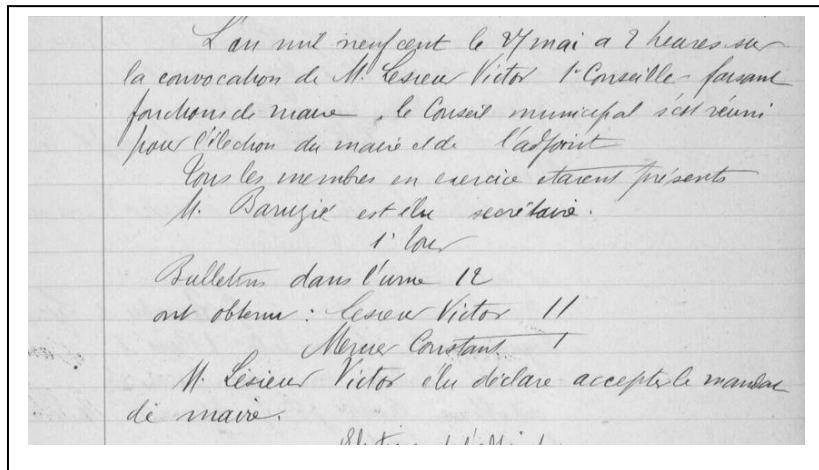 L'an mil neuf cent le 27 mai a 2 heures sur
la convocation de M. Lesieur Victor 1r Conseiller faisant
fonctions de maire, le Conseil municipal s'est réuni
pour l'élection du maire et de l'adjoint
Tous les membres en exercice étaient présents
M. Baruzié est élu secrétaire.
1r Tour
Bulletins dans l'urne 12
ont obtenu : Lesieur Victor 11
Mercier Constant 1
M. Lesieur Victor élu déclare accepter le mandat
de maire.